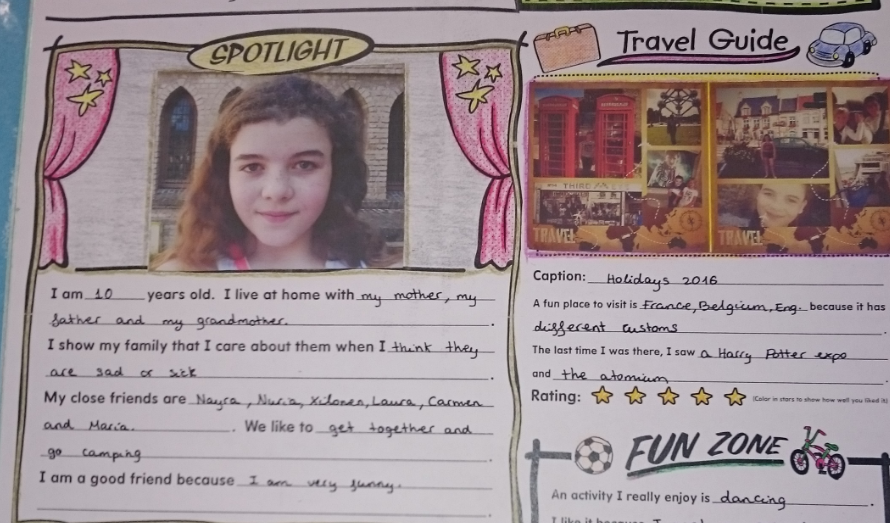 SPOTLIGHT
I am 10 years old. I live at home with my mother, my
father and my grandmother.
I show my family that I care about them when I think they
are sad or sick.
My close friends are Nayra, Nuria, Xilonen, Laura, Carmen
and María. We like to get together and
go camping.
I am a good friend because I am very funny.
Travel Guide
THIRD
TRAVEL
TRAVEL
Caption: Holidays 2016
A fun place to visit is France, Belgium, Eng. because it has
different customs.
The last time I was there, I saw a Harry Potter expo
and the atomium.
Rating: (Color in stars to show how well you liked it)
FUN ZONE
An activity I really enjoy is dancing.